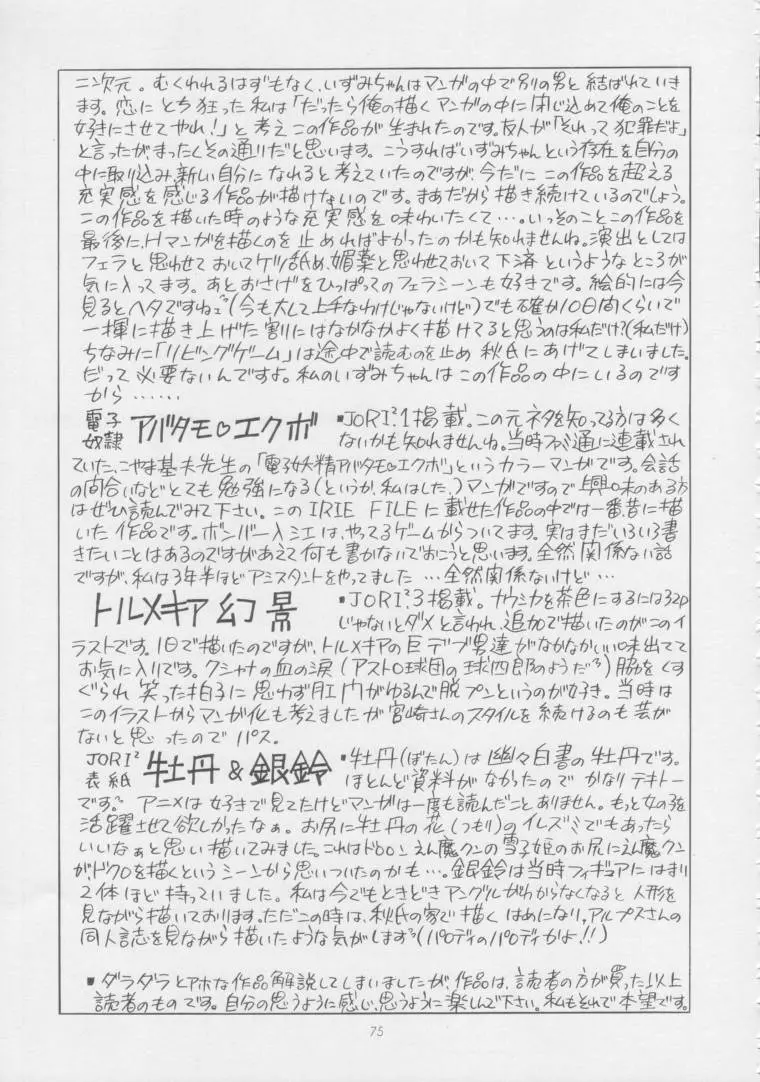 二次元。むくわれるはずもなく、いずみちゃんはマンガの中で別の男と結ばれていき
ます。恋にとち狂った私は「だったら俺の描くマンガの中に閉じ込めて俺のことを
好きにさせてやれ!」と考えこの作品が生まれたのです。友人が「それって犯罪だよ」
と言ったが、まったくその通りだと思います。こうすればいずみちゃんという存在を自分の
中に取り込み、新しい自分になれると考えていたのですが、今だにこの作品を超える
充実感を感じる作品が描けないのです。まあだから描き続けているのでしょう。
この作品を描いた時のような充実感を味わいたくて…。いっそのことこの作品を
最後に、Hマンガを描くのを止めればよかったのかも知れませんね。演出としては
フェラと思わせておいてケツ舐め、媚薬と思わせておいて下済というようなところが
気に入ってます。あとおさげをひっぱってのフェラシーンも好きです。絵的には今
見るとヘタですねェ(今も大して上手なわけじゃないけど)でも確か10日間くらいで
一揮に描き上げた割にはなかなかよく描けてると思うのは私だけ?(私だけ)
ちなみに「リビングゲーム」は途中で読むのを止め秋氏にあげてしまいました。
だって必要ないんですよ。私のいずみちゃんはこの作品の中にいるのです
から……
電子奴隷 アバタモ♡エクボ ▪JORI²1掲載。この元ネタを知ってる方は多く
ないかも知れませんね。当時ファミ通に連載され
ていた、こやま基夫先生の「電子妖精アバタモ♡エクボ」というカラーマンガです。会話
の間合いなどとても勉強になる(というか、私はした。)マンガですので興味のある方
はぜひ読んでみて下さい。この IRIE FILE に載せた作品の中では一番昔に描
いた作品です。ボンバー入江は、やってるゲームからついてます。実はまだいろいろ書
きたいことはあるのですがあえて何も書かないでおこうと思います。全然関係ない話
ですが、私は3年半ほどアシスタントをやってました…全然関係ないけど…
トルメキア幻景 ▪JORI²3掲載。ナウシカを茶色にするには32p
じゃないとダメと言われ、追加で描いたのがこのイ
ラストです。1日で描いたのですが、トルメキアの巨デブ男達がなかなかいい味出てて
お気に入りです。クシャナの血の涙(アストロ球団の球四郎のようだ)脇をくす
ぐられ笑った拍子に思わず肛門がゆるんで脱プンというのが好き。当時は
このイラストからマンガ化も考えましたが宮崎さんのスタイルを続けるのも芸が
ないと思ったのでパス。
JORI²表紙 牡丹&銀鈴 ▪牡丹(ぼたん)は幽々白書の牡丹です。
ほとんど資料がなかったのでかなりテキトー
です。アニメは好きで見てたけどマンガは一度も読んだことありません。もっと女の子を
活躍させて欲しかったなぁ。お尻に牡丹の花(つもり)のイレズミでもあったら
いいなぁと思い描いてみました。これはドロロンえん魔クンの雪子姫のお尻にえん魔クン
がドクロを描くというシーンから思いついたのかも…。銀鈴は当時フィギュアにはまり
2体ほど持っていました。私は今でもときどきアングルがわからなくなると人形を
見ながら描いております。ただこの時は、秋氏の家で描くはめになり、アルプスさんの
同人誌を見ながら描いたような気がします(パロディのパロディかよ!!)
▪ダラダラとアホな作品解説してしまいましたが、作品は、読者の方が買った以上
読者のものです。自分の思うように感じ、思うように楽しんで下さい。私もそれで本望です。
75